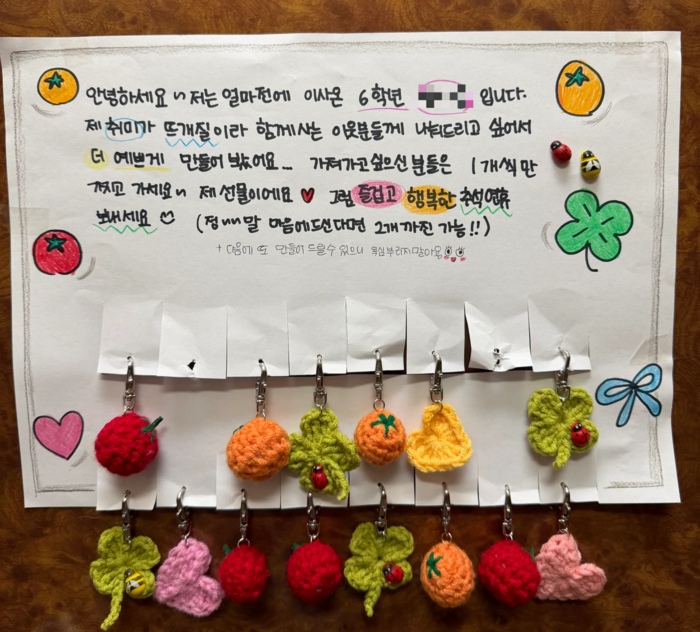 안녕하세요~ 저는 얼마전에 이사온 6학년 입니다.
제 취미가 뜨개질이라 함께사는 이웃분들께 나눠드리고 싶어서
더 예쁘게 만들어 봤어요... 가져가고싶으신 분들은 1개씩만
가지고 가세요~ 제 선물이에요 ♥ 그럼 즐겁고 행복한 추석연휴
보내세요 (정~~말 마음에드신다면 2개까진 가능!!)
+ 다음에 또 만들어 드릴수 있으니 욕심부리지말아욘